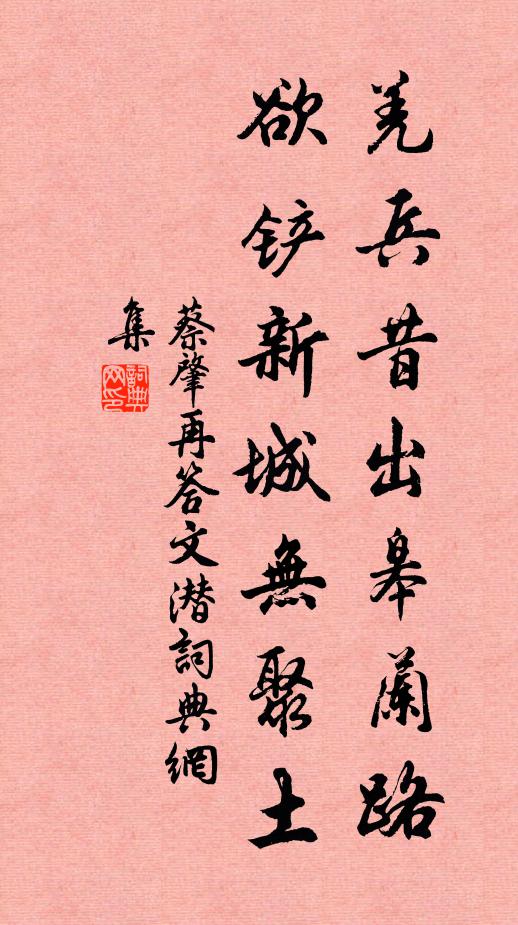 羌兵昔出皋蘭路
欲铲新城無聚土
蔡肇再答文潜詞典網
集
詞典网印